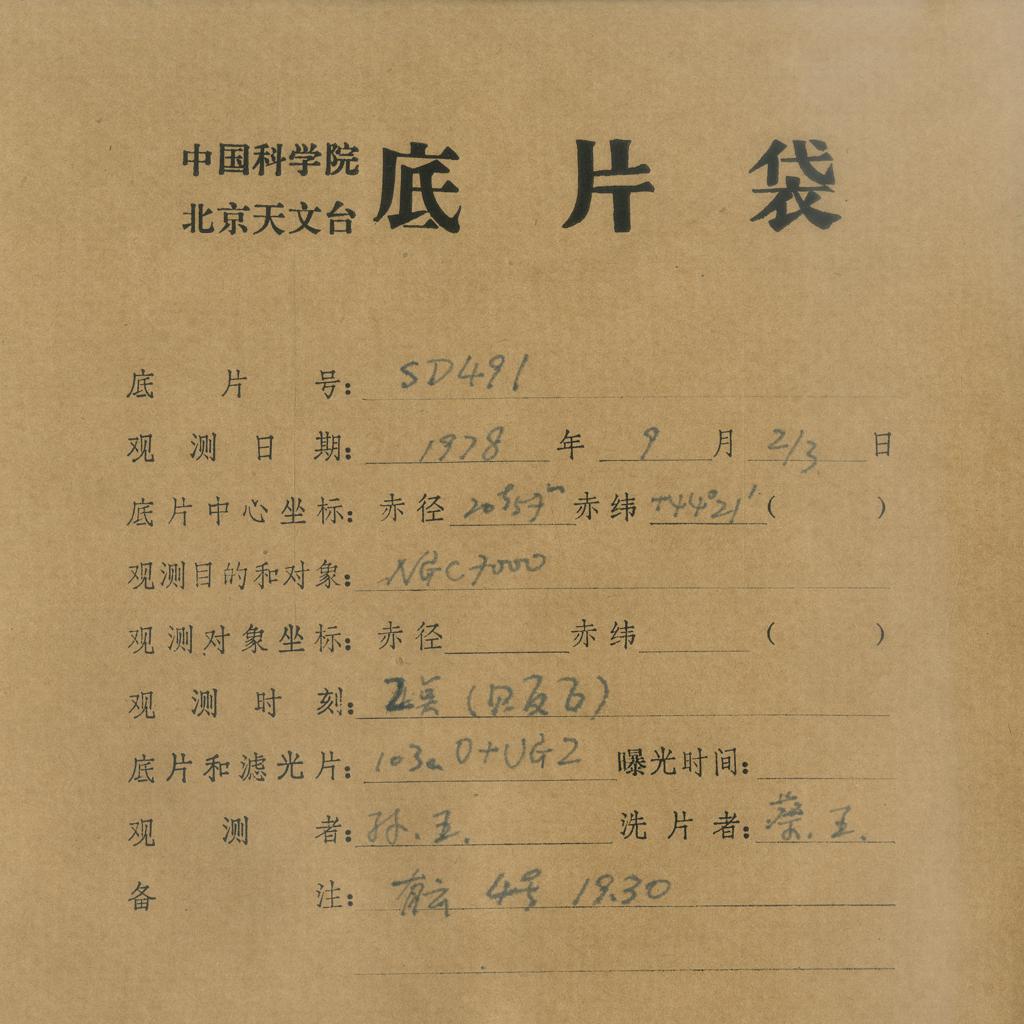 中国科学院
北京天文台
底片袋
底片号: SD491
观测日期: 1978 年 9 月 2/3 日
底片中心坐标: 赤径 20h57m 赤纬 +44°21′ ( )
观测目的和对象: NGC7000
观测对象坐标: 赤径 赤纬 ( )
观测时刻:
底片和滤光片: 103aO+UG2 曝光时间:
观测者: 孙.王. 洗片者: 蔡.王.
备注: 有云 4号 19.30